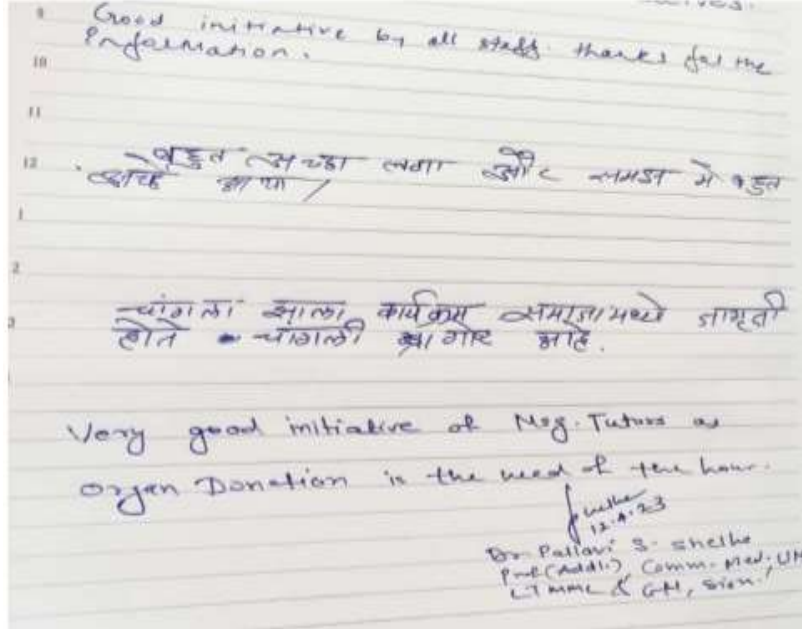 9
Good initiative by all staff. thanks for the
Information.
10
11
12
बहुत अच्छा लगा और समझ मे बहुत
आया /
1
2
चांगला झाला कार्यक्रम समाजामध्ये जागृती
होते चांगली गोष्ट आहे.
Very good initiative of Nsg. Tutors as
organ Donation is the need of the hour.
12.4.23
Dr Pallavi S. Shelke
Prof (Addl.) Comm. Med.
LTMMC & GH, Sion.